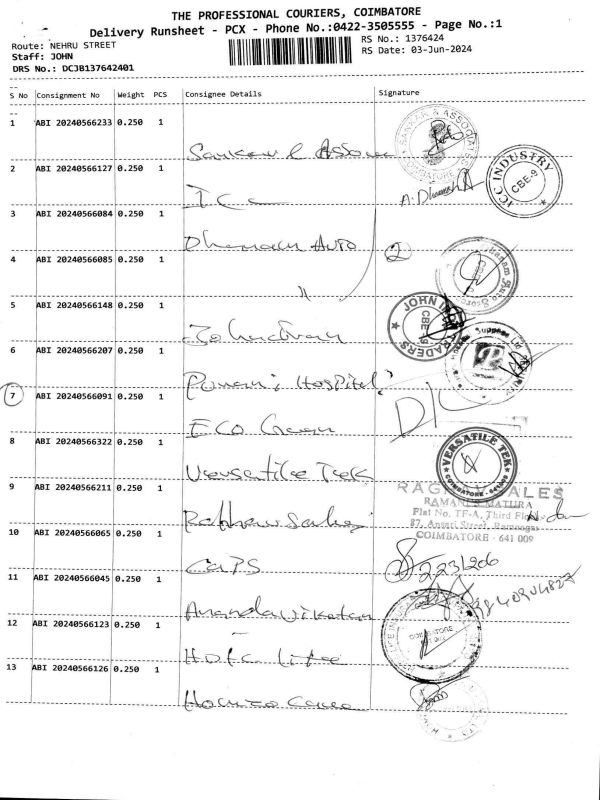 THE PROFESSIONAL COURIERS, COIMBATORE
Delivery Runsheet - PCX - Phone No.:0422-3505555 - Page No.:1
Route: NEHRU STREET
RS No.: 1376424
Staff: JOHN
RS Date: 03-Jun-2024
DRS No.: DCJB137642401
S No Consignment No Weight PCS Consignee Details Signature
1 ABI 20240566233 0.250 1
2 ABI 20240566127 0.250 1
ICC INDUSTRY CBE-9
3 ABI 20240566084 0.250 1
Auto
2
4 ABI 20240566085 0.250 1
"
5 ABI 20240566148 0.250 1
JOHN TRADERS CBE-9
6 ABI 20240566207 0.250 1
Hospital
7 ABI 20240566091 0.250 1
ECO Green
8 ABI 20240566322 0.250 1
Versatile Tek
VERSATILE TEK COIMBATORE - 641009
9 ABI 20240566211 0.250 1
SALES
Flat No. TF-A, Third
87, Ansari Street, Ramnagar
COIMBATORE - 641 009
10 ABI 20240566065 0.250 1
CAPS
2231206
11 ABI 20240566045 0.250 1
Anandavikatan
9840904827
12 ABI 20240566123 0.250 1
H.D.F.C. Life
13 ABI 20240566126 0.250 1